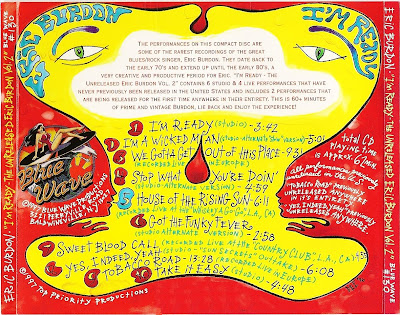 ERIC BURDON
I'M READY
THE PERFORMANCES ON THIS COMPACT DISC ARE
SOME OF THE RAREST RECORDINGS OF THE GREAT
BLUES/ROCK SINGER, ERIC BURDON. THEY DATE BACK TO
THE EARLY 70'S AND EXTEND UP UNTIL THE EARLY 80'S, A
VERY CREATIVE AND PRODUCTIVE PERIOD FOR ERIC. "I'M READY - THE
UNRELEASED ERIC BURDON VOL. 2" CONTAINS 6 STUDIO & 4 LIVE PERFORMANCES THAT HAVE
NEVER PREVIOUSLY BEEN RELEASED IN THE UNITED STATES AND INCLUDES 2 PERFORMANCES THAT
ARE BEING RELEASED FOR THE FIRST TIME ANYWHERE IN THEIR ENTIRETY. THIS IS 60+ MINUTES
OF PRIME AND VINTAGE BURDON, LIE BACK AND ENJOY THE EXPERIENCE!
1 I'M READY (STUDIO) - 3:42
2 I'M A WICKED MAN (STUDIO-ALTERNATE "SHOW" VERSION) - 5:01
3 WE GOTTA GET OUT OF THIS PLACE - 9:31
(RECORDED LIVE IN EUROPE)
4 STOP WHAT YOU'RE DOIN'
(STUDIO-ALTERNATE VERSION) - 4:59
5 HOUSE OF THE RISING SUN - 6:11
(RECORDED LIVE AT THE WHISKY A GO GO" L.A., CA)
6 GOT THE FUNKY FEVER
(STUDIO ALTERNATE VERSION) - 2:58
7 SWEET BLOOD CALL (RECORDED LIVE AT THE "COUNTRY CLUB" L.A., CA) 4:55
8 YES, INDEED, YEAH (STUDIO - "SUN SECRETS" OUTTAKE)
9 TOBACCO ROAD - 13:28 (RECORDED LIVE IN EUROPE) - 6:08
10 TAKE IT EASY (STUDIO) - 4:48
total CD
playing time
is Approx 61 min.
All performances previously
unreleased in U.S.
"TOBACCO ROAD" previously
UNRELEASED ANYWHERE
IN IT'S ENTIRETY.
"YES, INDEED, YEAH" previously
UNRELEASED ANYWHERE
Blue Wave
©1997 BLUE WAVE RECORDS
3221 PERRYVILLE RD.
BALDWINSVILLE, NY 13027
©1997 TOP PRIORITY PRODUCTIONS
ERIC BURDON, "I'M READY, THE UNRELEASED ERIC BURDON VOL. 2" BLUE WAVE #130
ERIC BURDON "I'M READY, THE UNRELEASED ERIC BURDON VOL. 2" BLUE WAVE #130